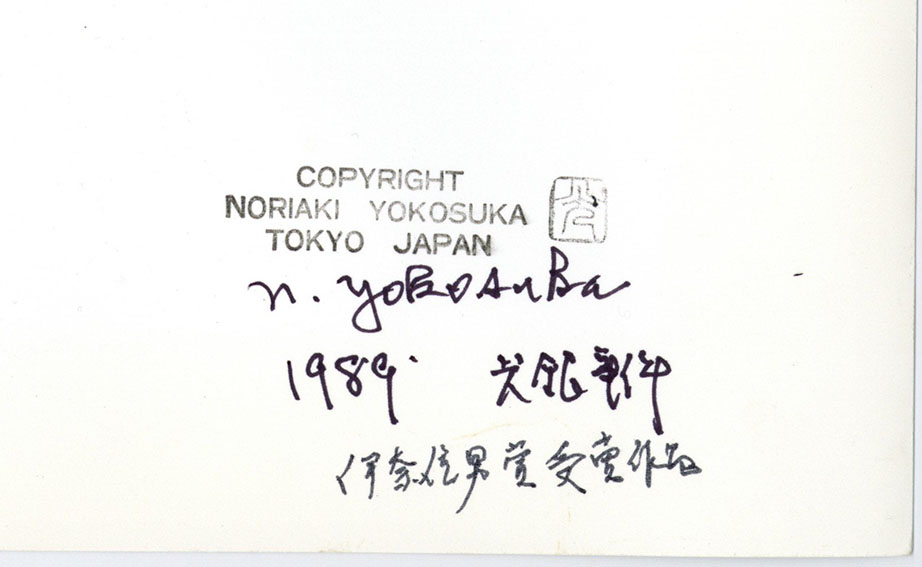 COPYRIGHT
NORIAKI YOKOSUKA
TOKYO JAPAN
n. yokosuka
1989. 光銀事件
伊奈信男賞受賞作品